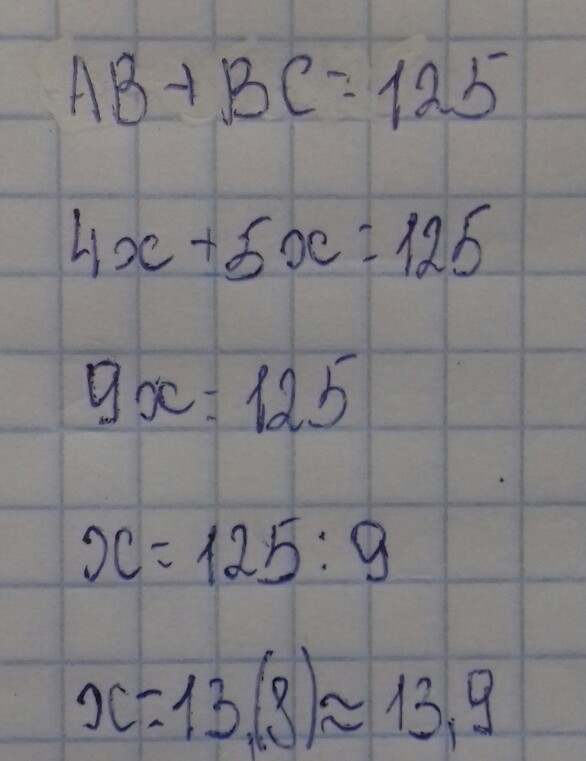 AB + BC = 125
4x + 5x = 125
9x = 125
x = 125 : 9
x = 13,(8) ≈ 13,9